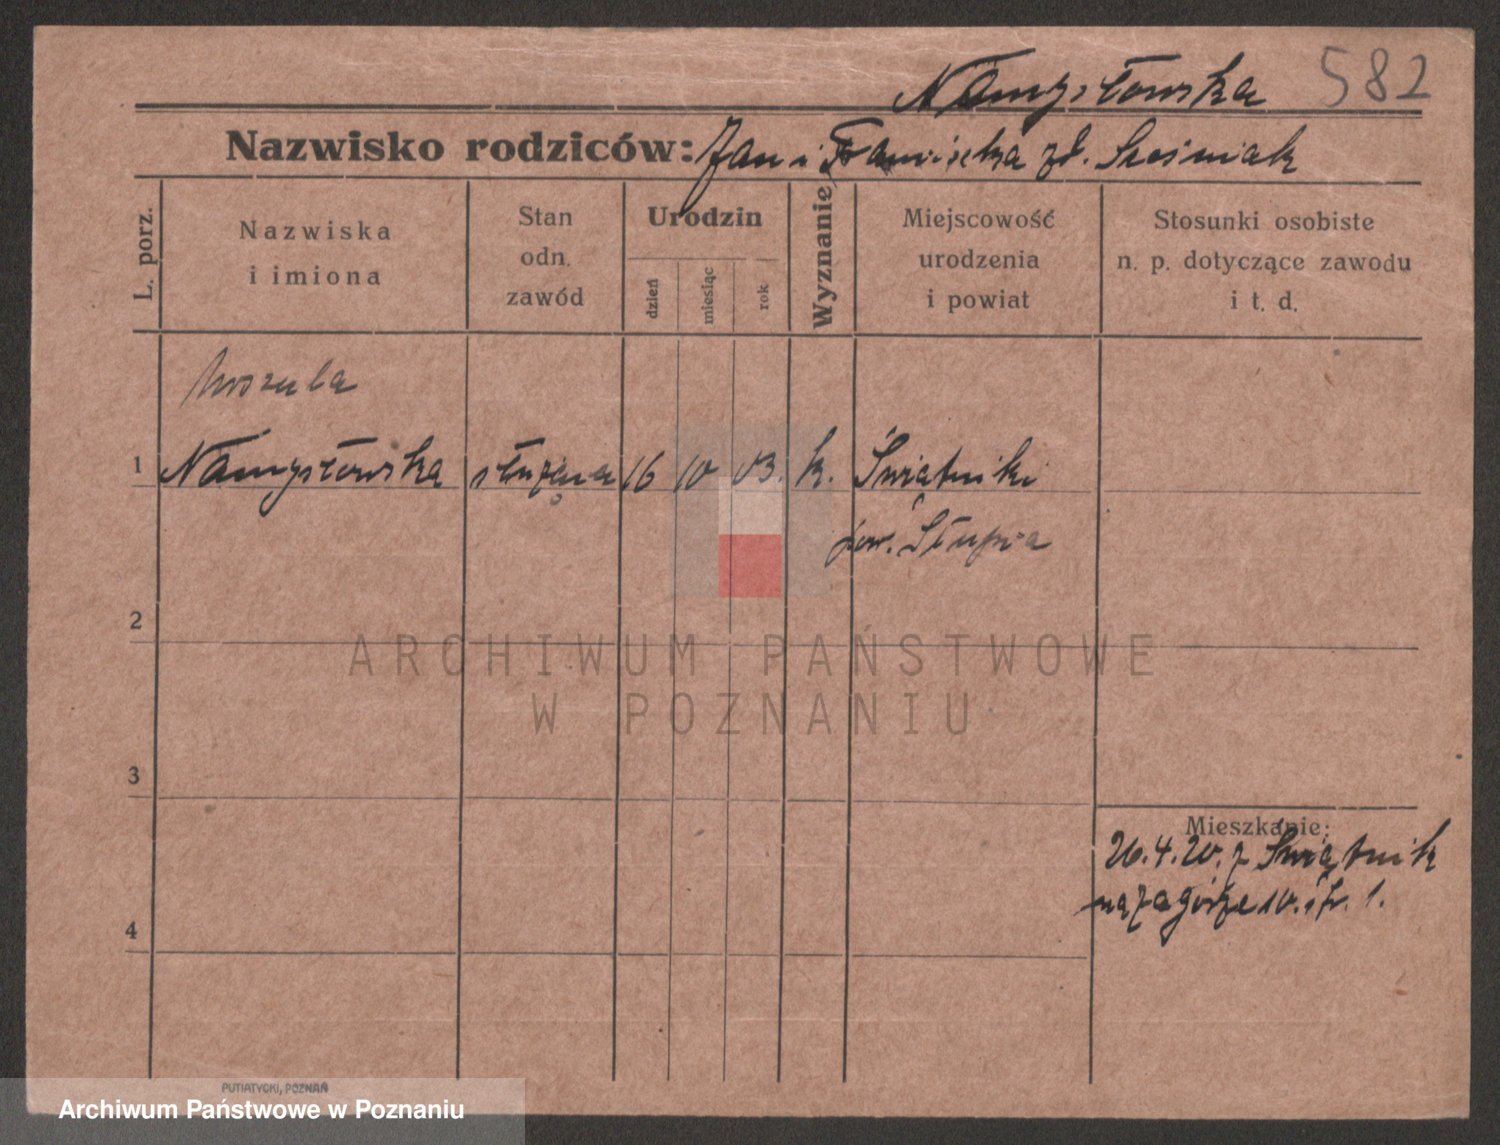 Namysłowska 582
Nazwisko rodziców: Jan i Franciszka zd. Sześniak
L. porz.
Nazwiska
i imiona
Stan
odn.
zawód
Urodzin
dzień
miesiąc
rok
Wyznanie
Miejscowość
urodzenia
i powiat
Stosunki osobiste
n. p. dotyczące zawodu
i t. d.
Urszula
1 Namysłowska służąca 16 10 03. k. Świątniki
pow. Słupca
2
ARCHIWUM PAŃSTWOWE
W POZNANIU
3
Mieszkanie:
26.4.20. z Świątnik
na Zagórze 10. 1.
4
PUTIATYCKI, POZNAŃ
Archiwum Państwowe w Poznaniu